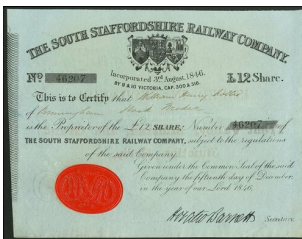 THE SOUTH STAFFORDSHIRE RAILWAY COMPANY.
Incorporated 3rd August, 1846.
BY 9 & 10 VICTORIA, CAP. 300 & 316.
No 46207
£12 Share.
This is to Certify that William Henry
of Birmingham
is the Proprietor of the £12 SHARE, Number 46207 of
THE SOUTH STAFFORDSHIRE RAILWAY COMPANY, subject to the regulations
of the said Company.
Given under the Common Seal of the said
Company the fifteenth day of December,
in the year of our Lord 1846.
Secretary.